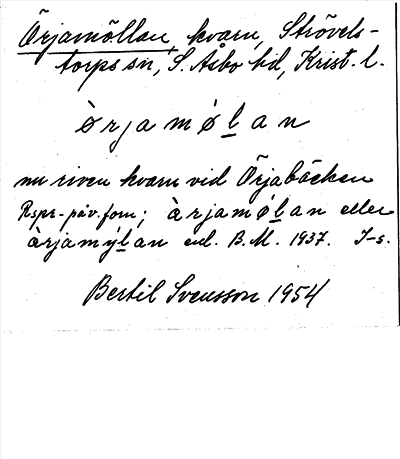 Örjamöllan, kvarn, Strövels-
torps sn, S. Åsbo hd, Krist. l.
ò r j a m ø l̲ a n
nu riven kvarn vid Örjabäcken
Rspr-påv. form; àrjamøl̲an eller
àrjamýl̲an enl. B.M. 1937. I-s.
Bertil Svensson 1954